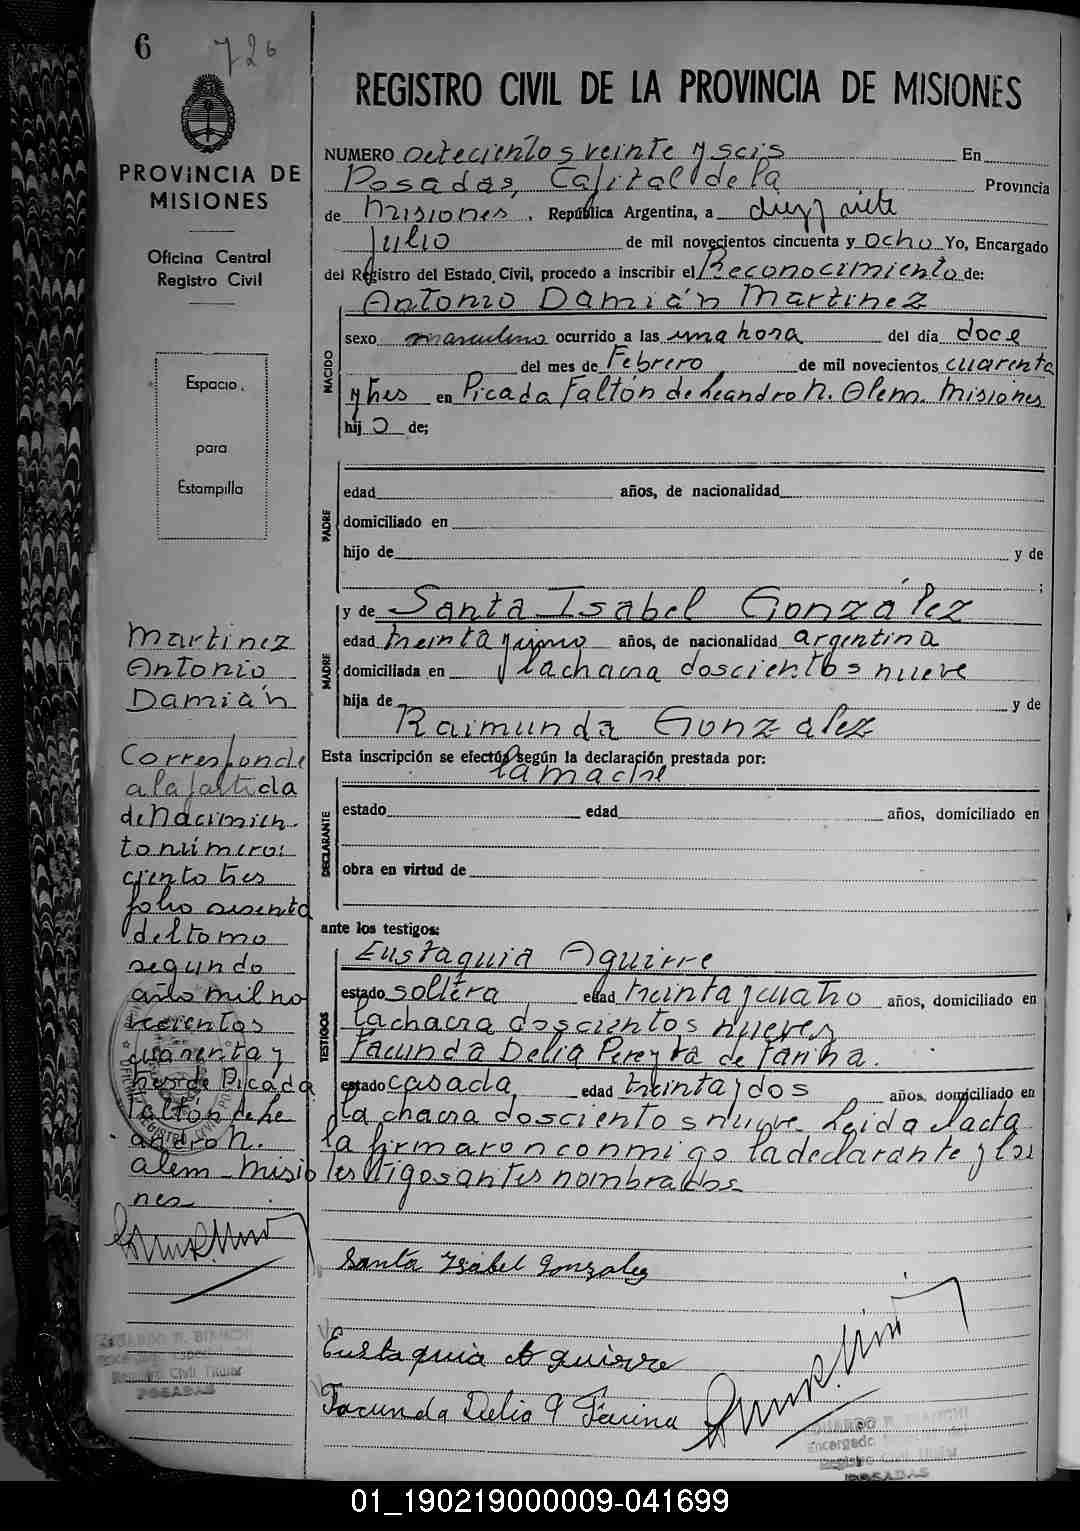 6
726
PROVINCIA DE
MISIONES
Oficina Central
Registro Civil
Espacio
para
Estampilla
Martinez
Antonio
Damián
Corresponde
a la partida
de Nacimien
to número:
ciento tres
folio sesenta
del tomo
segundo
año mil no
vecientos
cuarenta y
tres de Picada
Faltón de Le
andro N.
alem - Misio
nes
EDUARDO R. BIANCHI
Registro Civil Titular
POSADAS
REGISTRO CIVIL DE LA PROVINCIA DE MISIONES
NUMERO Setecientos veinte y seis En
Posadas, Capital de la Provincia
de Misiones, República Argentina, a diez y siete
Julio de mil novecientos cincuenta y ocho Yo, Encargado
del Registro del Estado Civil, procedo a inscribir el Reconocimiento de:
Antonio Damián Martinez
NACIDO
sexo masculino ocurrido a las una hora del día doce
del mes de Febrero de mil novecientos cuarenta
y tres en Picada Faltón de Leandro N. Alem. Misiones
hijo de;
PADRE
edad años, de nacionalidad
domiciliado en
hijo de y de
;
MADRE
y de Santa Isabel González
edad treinta y uno años, de nacionalidad argentina
domiciliada en la chacra doscientos nueve
hija de y de
Raimunda Gonzalez
Esta inscripción se efectúa según la declaración prestada por:
la madre
DECLARANTE
estado edad años, domiciliado en
obra en virtud de
ante los testigos:
TESTIGOS
Eustaquia Aguirre
estado soltera edad treinta y cuatro años, domiciliado en
la chacra doscientos nueve y
Facunda Delia Pereyra de Farina.
estado casada, edad treinta y dos años, domiciliado en
la chacra doscientos nueve Leida el acta
la firmaron conmigo la declarante y los
testigos antes nombrados
Santa Ysabel Gonzalez
Eustaquia Aguirre
Facunda Delia P Farina
EDUARDO R. BIANCHI
Encargado
Registro Civil Titular
POSADAS
01_190219000009-041699